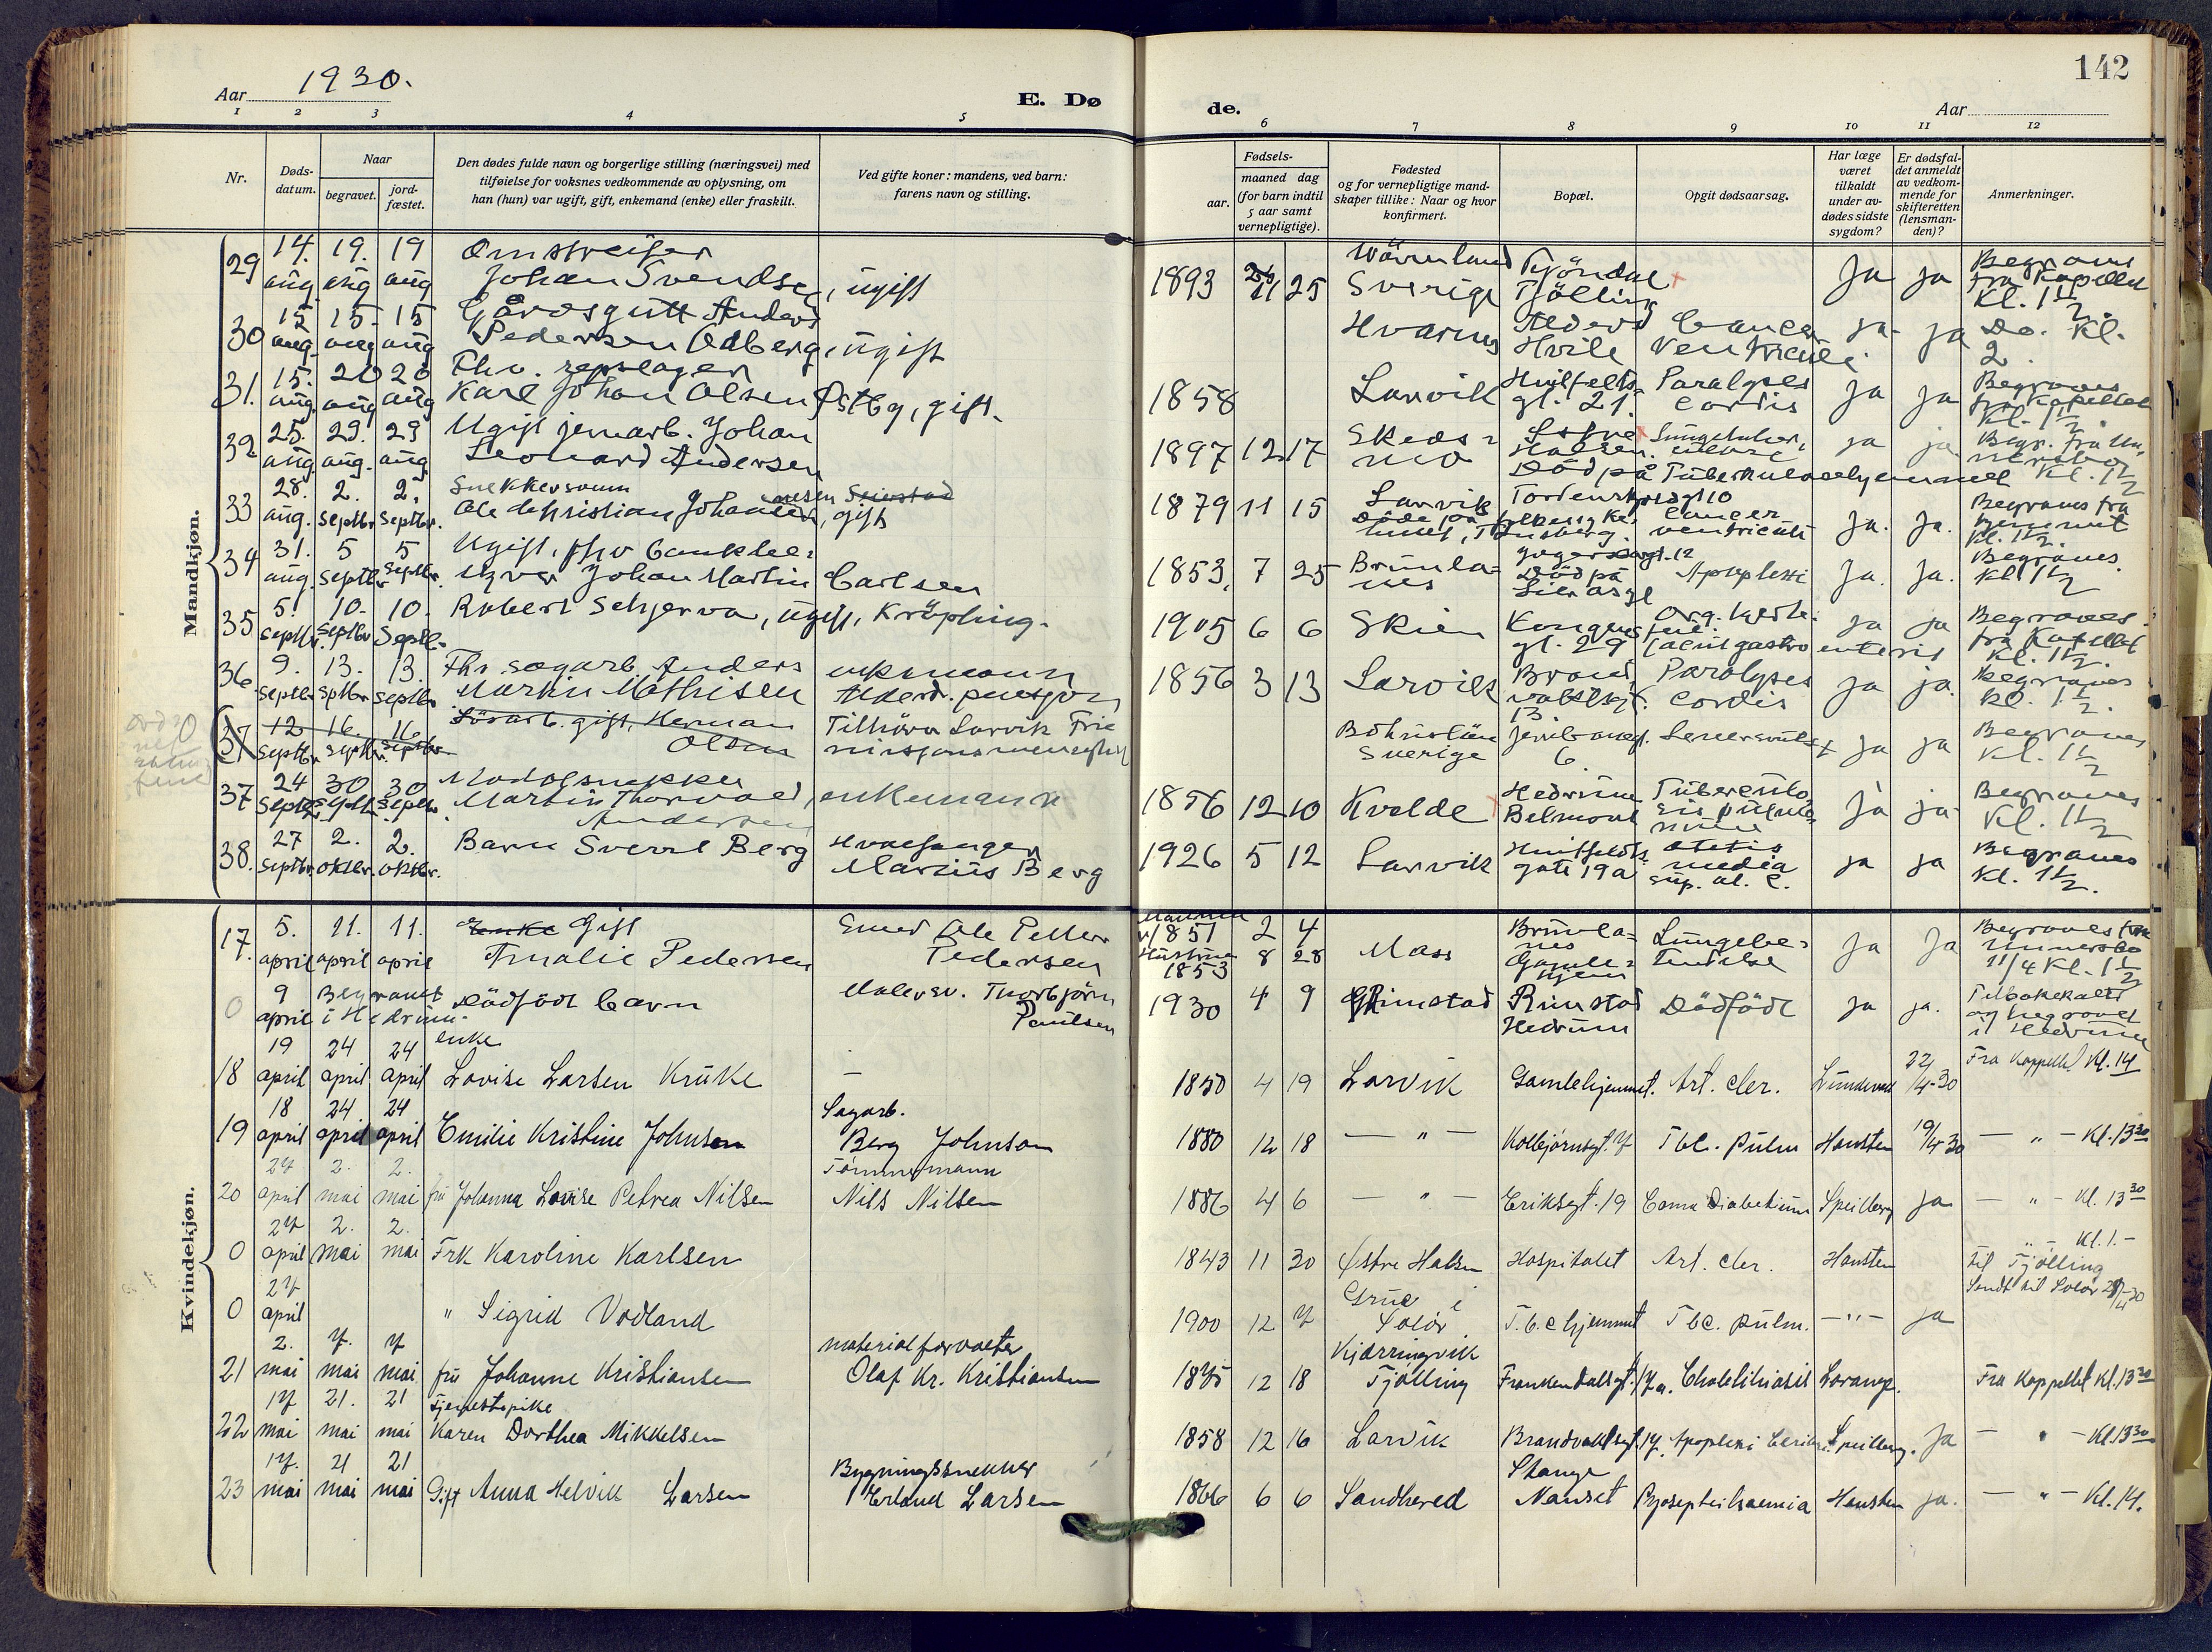 Aar 1930.
E. Dø
de.
Aar
142
1 2 3 4 5
6 7 8 9 10 11 12
Nr.
Døds-datum.
Naar
begravet.
jord-fæstet.
Den dødes fulde navn og borgerlige stilling (næringsvei) med
tilføielse for voksnes vedkommende av oplysning, om
han (hun) var ugift, gift, enkemand (enke) eller fraskilt.
Ved gifte koner: mandens, ved barn:
farens navn og stilling.
Fødsels-
aar.
maaned dag
(for barn indtil
5 aar samt
vernepligtige).
Fødested
og for vernepligtige mand-
skaper tillike: Naar og hvor
konfirmert.
Bopæl.
Opgit dødsaarsag.
Har læge
været
tilkaldt
under av-
dødes sidste
sygdom?
Er dødsfal-
det anmeldt
av vedkom-
mende for
skifteretten
(lensman-
den)?
Anmerkninger.
Mandkjøn.
29 14. aug 19. aug 19 aug Omstreifer Johan Svendsen, ugift 1893 11 25 Värmland Sverige Tjölling Ja ja Begraves fra Kapellet Kl. 1 1/2
30 15 aug. 15. aug 15 aug Gårdsgutt Anders Pedersen Odberg, ugift Hvarnes Hvile Cancer ventriculi ja ja Do. Kl. 2.
31. 15. aug. 20 aug 20 aug Fhv. repslager Karl Johan Olsen Östby, gift. 1858 Larvik Huitfelts gt. 21. Paralyses cordis ja ja Begraves fra Kapellet Kl. 1 1/2.
32 25. aug 29. aug. 29 aug. Ugift jernarb. Johan Leonard Andersen 1897 12 17 Skedsmo Död på Tuberkulosehjemmet ja ja Begr. fra Kl. 1 1/2
33 28. aug. 2. septbr 2. septbr. Snekkersvenn Ole Christian Johannesen, gift 1879 11 15 Larvik Tordenskjoldsgt 10 Cancer ventriculi ja. ja. Begraves fra Kl. 1 1/2.
34 31. aug. 5 septbr 5 septbr. Ugift, fhv Johan Martin Carlsen 1853, 7 25 Brunlanes Död på Apoplexi Ja. Ja. Begraves. Kl 1 1/2
35 5. septbr. 10. septbr 10. Septb. Robert Schjerva, ugift, Krøpling. 1905 6 6 Skien Kongens gt. 29 Org. hjertefeil gastroenterit ja ja Begraves fra Kapellet Kl. 1 1/2.
36 9. septbr 13. sptbr 13. septbr Fhv. sagarb. Anders Martin Mathisen enkemann Alderd. pensjon 1856 3 13 Larvik 13. Paralyses Cordis ja ja. Begraves kl. 1 1/2.
37 12 septbr 16. septbr. 16 septbr. gift, Herman Olsen Tilhörer Larvik Frie Sverige 6. ja ja Begraves Kl. 1 1/2
37 24 septbr. 30 septb. 30 septbr. Modelsnekker Martin Thorvald Andersen, enkemann 1856 12 10 Kvelde Hedrum Belmont ja ja Begraves Kl. 1 1/2
38. 27 septbr 2. oktbr. 2. oktbr. Barn Sverre Berg Hvalfanger Marius Berg 1926 5 12 Larvik Huitfeldts gate 19a otitis media sup. ja ja Begraves Kl. 1 1/2.
Kvindekjøn.
17. 5. april 11. april 11. april Enke Gift Amalie Pedersen Ole Petter Pedersen 1851 2 4 Hustrun 1853 8 28 Mass Brunlanes Gamlehjem Lungebetendelse Ja Ja Begraves fra 11/4 Kl. 1 1/2
0 9 april Begravet i Hedrum. Dödfödt barn Malersv. Thorbjörn Paulsen 1930 4 9 Rimstad Hedrum Dödfödt ja ja. Tilbakekalt og begravet i Hedrum
18 19 april 24 april 24 april enke Lovise Larsen Kruke — 1850 4 19 Larvik Gamlehjemmet. Art. cler. 22/4-30 Fra Kappellet Kl. 14
19 18 april 24 april 24 april Emilie Kristine Johnsen Sagarb. Berg Johnson 1880 12 18 — " — Kolbjørnsgt. 7 Tbc. pulm Hansten 19/4 30 — " — Kl. 13 30
20 27 april 2. mai 2. mai fru Johanna Lovise Petrea Nilsen Tömmermann Nils Nilsen 1886 4 6 — " — Eriksgt. 19 Coma Diabetium Speilberg ja — " — Kl. 13 30
0 27 april 2. mai 2. mai Frk Karoline Karlsen 1843 11 30 Østre Halsen Hospitalet Art. cler. Hansten — " — Kl. 1. — til Tjølling
0 27 april " Sigrid Vodland 1900 12 7 Grue i Solør T.b.c hjemmet Tbc. pulm. — " — ja Sendt til Solør 29/4-30
21 2. mai 7. mai 7 mai fru Johanne Kristiansen materialforvalter Olaf Kr. Kristiansen 1875 12 18 Kjærringvik Tjølling Frankendalsgt. 17a. Cholelithiasis Fra Kappellet Kl. 13 30
22 17 mai 21. mai 21 mai Tjenestepike Karen Dorthea Mikkelsen 1858 12 16 Larvik Brandvaktsgt. 17. Apoplexi Speilberg. Ja — " — Kl. 13 30
23 17. mai 21 mai 21 mai Gift Anna Helvik Larsen Bygningssnekker Erland Larsen 1866 6 6 Sandhered Stange Nanset Pyosepticæmia Hansten ja. — " — Kl. 14.